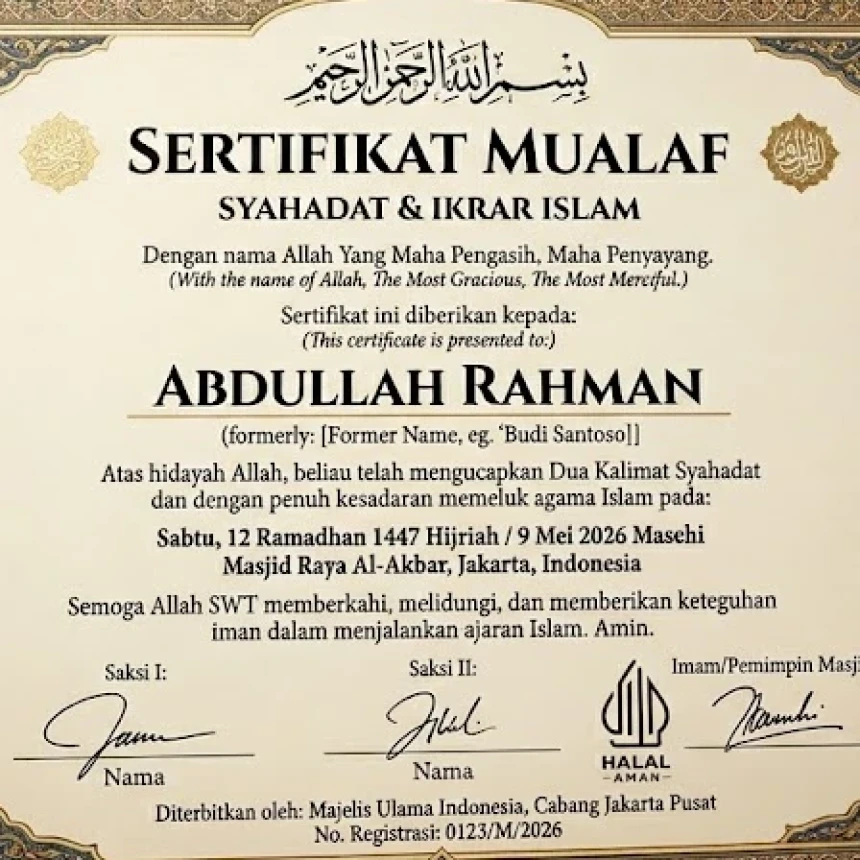 بسم الله الرحمن الرحيم
SERTIFIKAT MUALAF
SYAHADAT & IKRAR ISLAM
Dengan nama Allah Yang Maha Pengasih, Maha Penyayang.
(With the name of Allah, The Most Gracious, The Most Merciful.)
Sertifikat ini diberikan kepada:
(This certificate is presented to:)
ABDULLAH RAHMAN
(formerly: [Former Name, eg. ‘Budi Santoso]]
Atas hidayah Allah, beliau telah mengucapkan Dua Kalimat Syahadat
dan dengan penuh kesadaran memeluk agama Islam pada:
Sabtu, 12 Ramadhan 1447 Hijriah / 9 Mei 2026 Masehi
Masjid Raya Al-Akbar, Jakarta, Indonesia
Semoga Allah SWT memberkahi, melidungi, dan memberikan keteguhan
iman dalam menjalankan ajaran Islam. Amin.
Saksi I:
Saksi II:
Imam/Pemimpin Masji
Nama
Nama
HALAL
-AMAN-
Diterbitkan oleh: Majelis Ulama Indonesia, Cabang Jakarta Pusat
No. Registrasi: 0123/M/2026